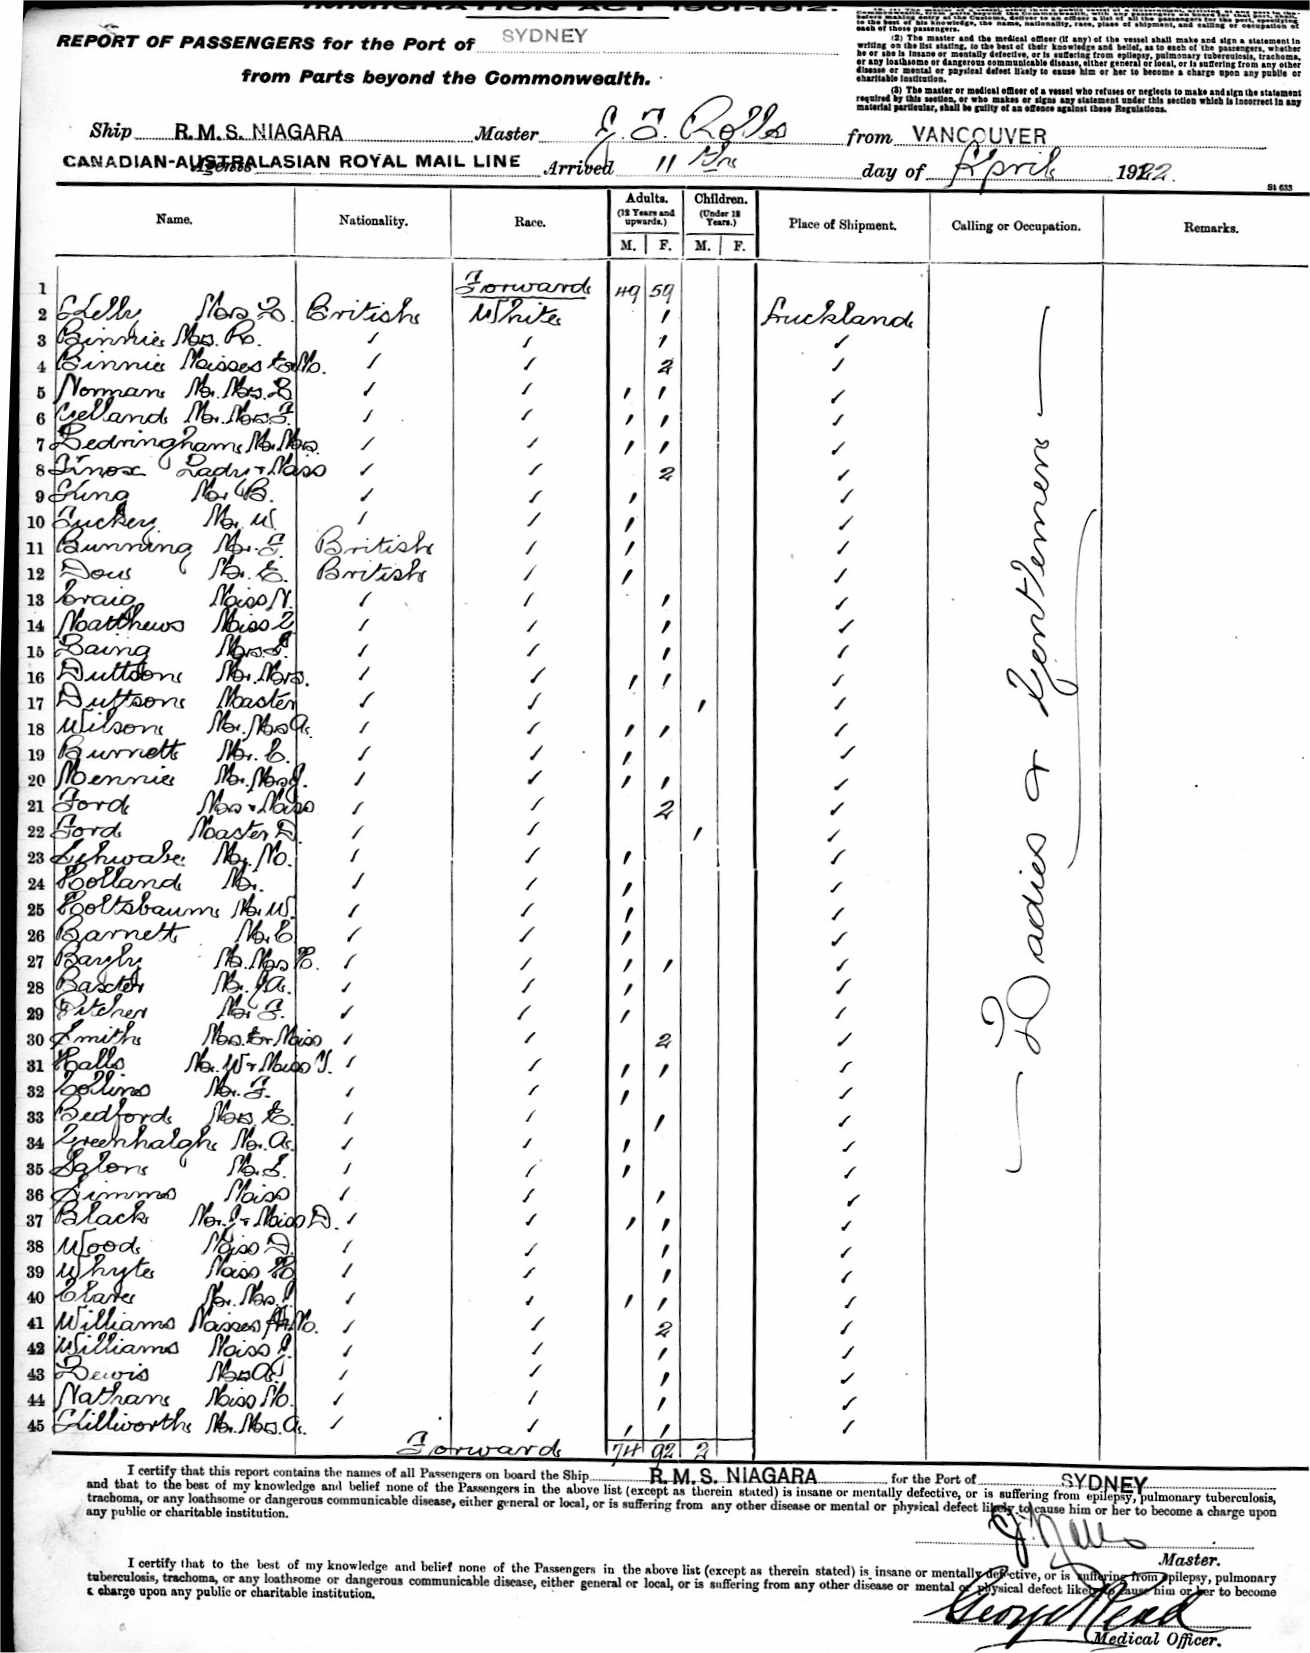 IMMIGRATION ACT 1901-1912.
REPORT OF PASSENGERS for the Port of SYDNEY
from Parts beyond the Commonwealth.
(2) The master and the medical officer (if any) of the vessel shall make and sign a statement in
writing on the list stating, to the best of their knowledge and belief, as to each of the passengers, whether
he or she is insane or mentally defective, or is suffering from epilepsy, pulmonary tuberculosis, trachoma,
or any loathsome or dangerous communicable disease, either general or local, or is suffering from any other
disease or mental or physical defect likely to cause him or her to become a charge upon any public or
charitable institution.
(3) The master or medical officer of a vessel who refuses or neglects to make and sign the statement
required by this section, or who makes or signs any statement under this section which is incorrect in any
material particular, shall be guilty of an offence against these Regulations.
Ship R.M.S. NIAGARA Master J. T. Rolls from VANCOUVER
CANADIAN-AUSTRALASIAN ROYAL MAIL LINE Arrived 11 day of April 1922.
St 633
Name. Nationality. Race. Adults. (12 Years and upwards.) M. F. Children. (Under 12 Years.) M. F. Place of Shipment. Calling or Occupation. Remarks.
1 Forward 49 59
2 Mrs British White ' Auckland
3 Binnie Mrs. R. ✓ ✓ ' ✓
4 Binnie Misses & M. ✓ ✓ 2 ✓
5 Norman Mr. Mrs. ✓ ✓ ' ' ✓
6 Mr. Mrs. ✓ ✓ ' ' ✓
7 Ledringham Mr. Mrs. ✓ ✓ ' ' ✓
8 Knox Lady & Miss ✓ ✓ 2 ✓
9 Mr. ✓ ✓ ' ✓
10 Mr. W. ✓ ✓ ' ✓
11 Bunning Mr. F. British ✓ ' ✓
12 Mr. E. British ✓ ' ✓
13 Craig Miss N. ✓ ✓ ' ✓
14 Matthews Miss ✓ ✓ ' ✓
15 Laing Mrs ✓ ✓ ' ✓
16 Duttson Mr. Mrs. ✓ ✓ ' ' ✓
17 Duttson Master ✓ ✓ ' ✓
18 Wilson Mr. Mrs A. ✓ ✓ ' ' ✓
19 Burnett Mr. C. ✓ ✓ ' ✓
20 Mennie Mr. Mrs J. ✓ ✓ ' ' ✓
21 Ford Mrs & Miss ✓ ✓ 2 ✓
22 Ford Master D. ✓ ✓ ' ✓
23 Schwabe Mr. M. ✓ ✓ ' ✓
24 Holland Mr. ✓ ✓ ' ✓
25 Holtsbaum Mr. W. ✓ ✓ ' ✓
26 Barnett Mr. C ✓ ✓ ' ✓
27 Bayly Mr. Mrs H. ✓ ✓ ' ' ✓
28 Baxter Mr. J.A. ✓ ✓ ' ✓
29 Pitcher Mr. F. ✓ ✓ ' ✓
30 Smith Mrs. & Miss ✓ ✓ 2 ✓
31 Halls Mr. W & Miss Y. ✓ ✓ ' ' ✓
32 Collins Mr. F. ✓ ✓ ' ✓
33 Bedford Mrs E. ✓ ✓ ' ✓
34 Greenhalgh Mr. A. ✓ ✓ ' ✓
35 Mr. S. ✓ ✓ ' ✓
36 Simms Miss ✓ ✓ ' ✓
37 Black Mr. J. & Miss D. ✓ ✓ ' ' ✓
38 Wood Miss D. ✓ ✓ ' ✓
39 Whyte Miss H ✓ ✓ ' ✓
40 Clare Mr. Mrs. J ✓ ✓ ' ' ✓
41 Williams Misses M. ✓ ✓ 2 ✓
42 Williams Miss J. ✓ ✓ ' ✓
43 Lewis Mrs A. ✓ ✓ ' ✓
44 Nathan Miss M. ✓ ✓ ' ✓
45 Mr. Mrs. A. ✓ ✓ ' ' ✓
Ladies & Gentlemen
Forward 74 92 2
I certify that this report contains the names of all Passengers on board the Ship R.M.S. NIAGARA for the Port of SYDNEY
and that to the best of my knowledge and belief none of the Passengers in the above list (except as therein stated) is insane or mentally defective, or is suffering from epilepsy, pulmonary tuberculosis,
trachoma, or any loathsome or dangerous communicable disease, either general or local, or is suffering from any other disease or mental or physical defect likely to cause him or her to become a charge upon
any public or charitable institution.
Master.
I certify that to the best of my knowledge and belief none of the Passengers in the above list (except as therein stated) is insane or mentally defective, or is suffering from epilepsy, pulmonary
tuberculosis, trachoma, or any loathsome or dangerous communicable disease, either general or local, or is suffering from any other disease or mental or physical defect likely to cause him or her to become
a charge upon any public or charitable institution.
George Read
Medical Officer.